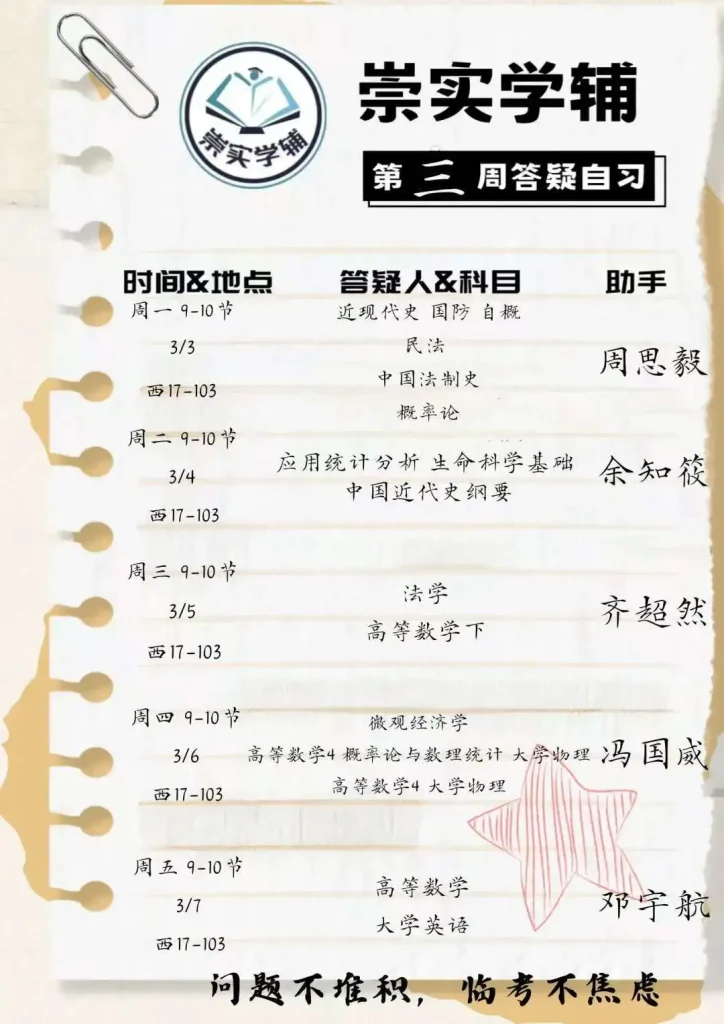 崇实学辅
崇实学辅
第三周答疑自习
时间&地点 答疑人&科目 助手
周一 9-10节
3/3
西17-103
近现代史 国防 自概
民法
中国法制史
概率论
周思毅
周二 9-10节
3/4
西17-103
应用统计分析 生命科学基础
中国近代史纲要
余知筱
周三 9-10节
3/5
西17-103
法学
高等数学下
齐超然
周四 9-10节
3/6
西17-103
微观经济学
高等数学4 概率论与数理统计 大学物理
高等数学4 大学物理
冯国威
周五 9-10节
3/7
西17-103
高等数学
大学英语
邓宇航
问题不堆积，临考不焦虑